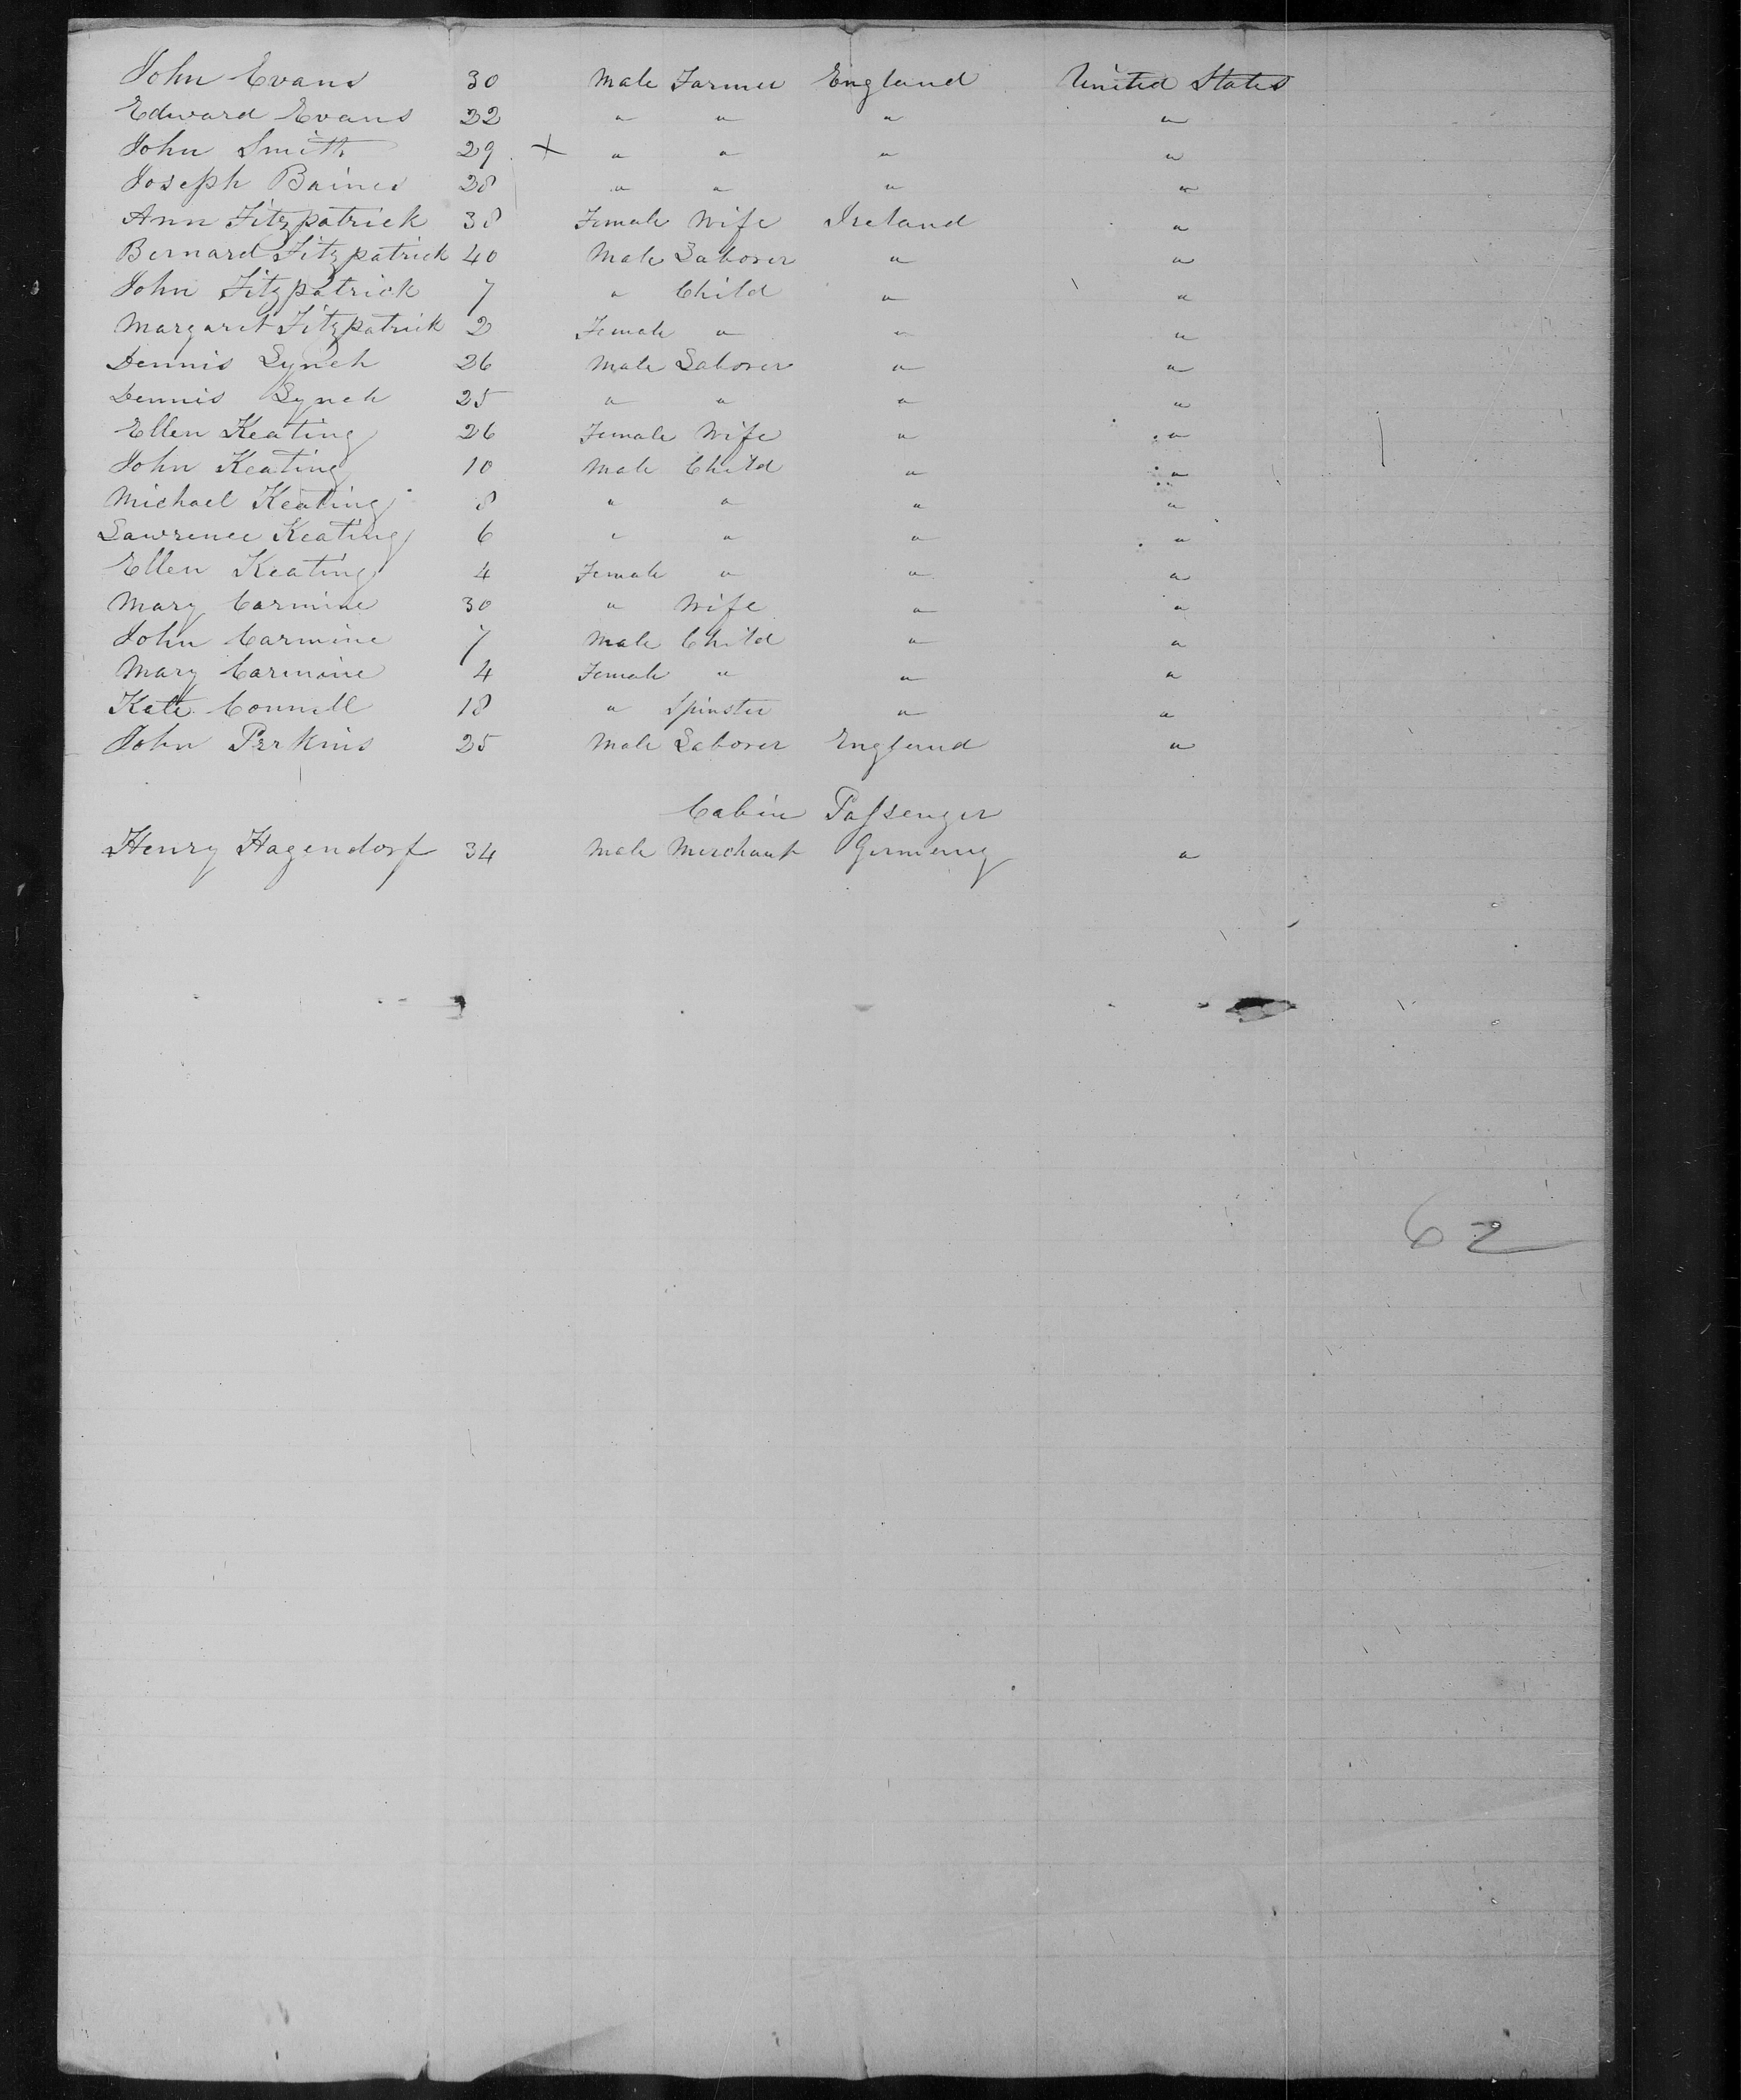 John Evans 30 Male Farmer England United States
Edward Evans 22 " " " "
John Smith 29 X " " " "
Joseph Baines 28 " " " "
Ann Fitzpatrick 38 Female Wife Ireland "
Bernard Fitzpatrick 40 Male Laborer " "
John Fitzpatrick 7 " Child " "
Margaret Fitzpatrick 2 Female " " "
Dennis Lynch 26 Male Laborer " "
Dennis Lynch 25 " " " "
Ellen Keating 26 Female Wife " "
John Keating 10 Male Child " "
Michael Keating 8 " " " "
Lawrence Keating 6 " " " "
Ellen Keating 4 Female " " "
Mary Carmine 30 " Wife " "
John Carmine 7 Male Child " "
Mary Carmine 4 Female " " "
Kate Connell 18 " Spinster " "
John Perkins 25 Male Laborer England "
Cabin Passenger
Henry Hagendorf 34 Male Merchant Germany "
62